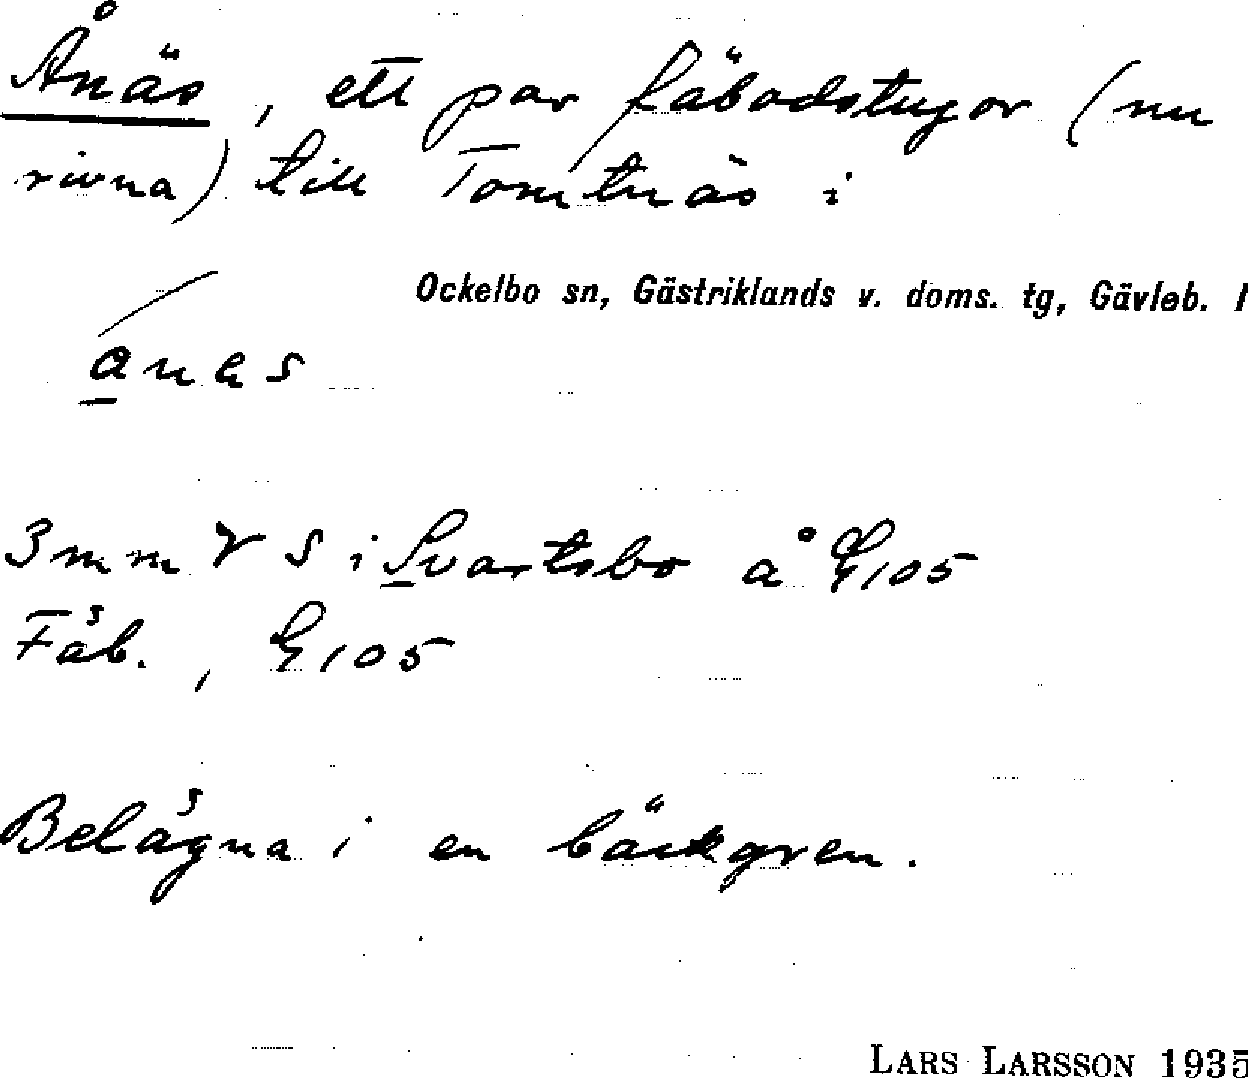 Ånäs, ett par fäbodstugor (nu
rivna) till Tomtnäs i
Ockelbo sn, Gästriklands v. doms. tg, Gävleb. l
3 mm V S i Svartsbo å G105
Fäb., G105
Belägna i en bäckgren.
LARS LARSSON 1935